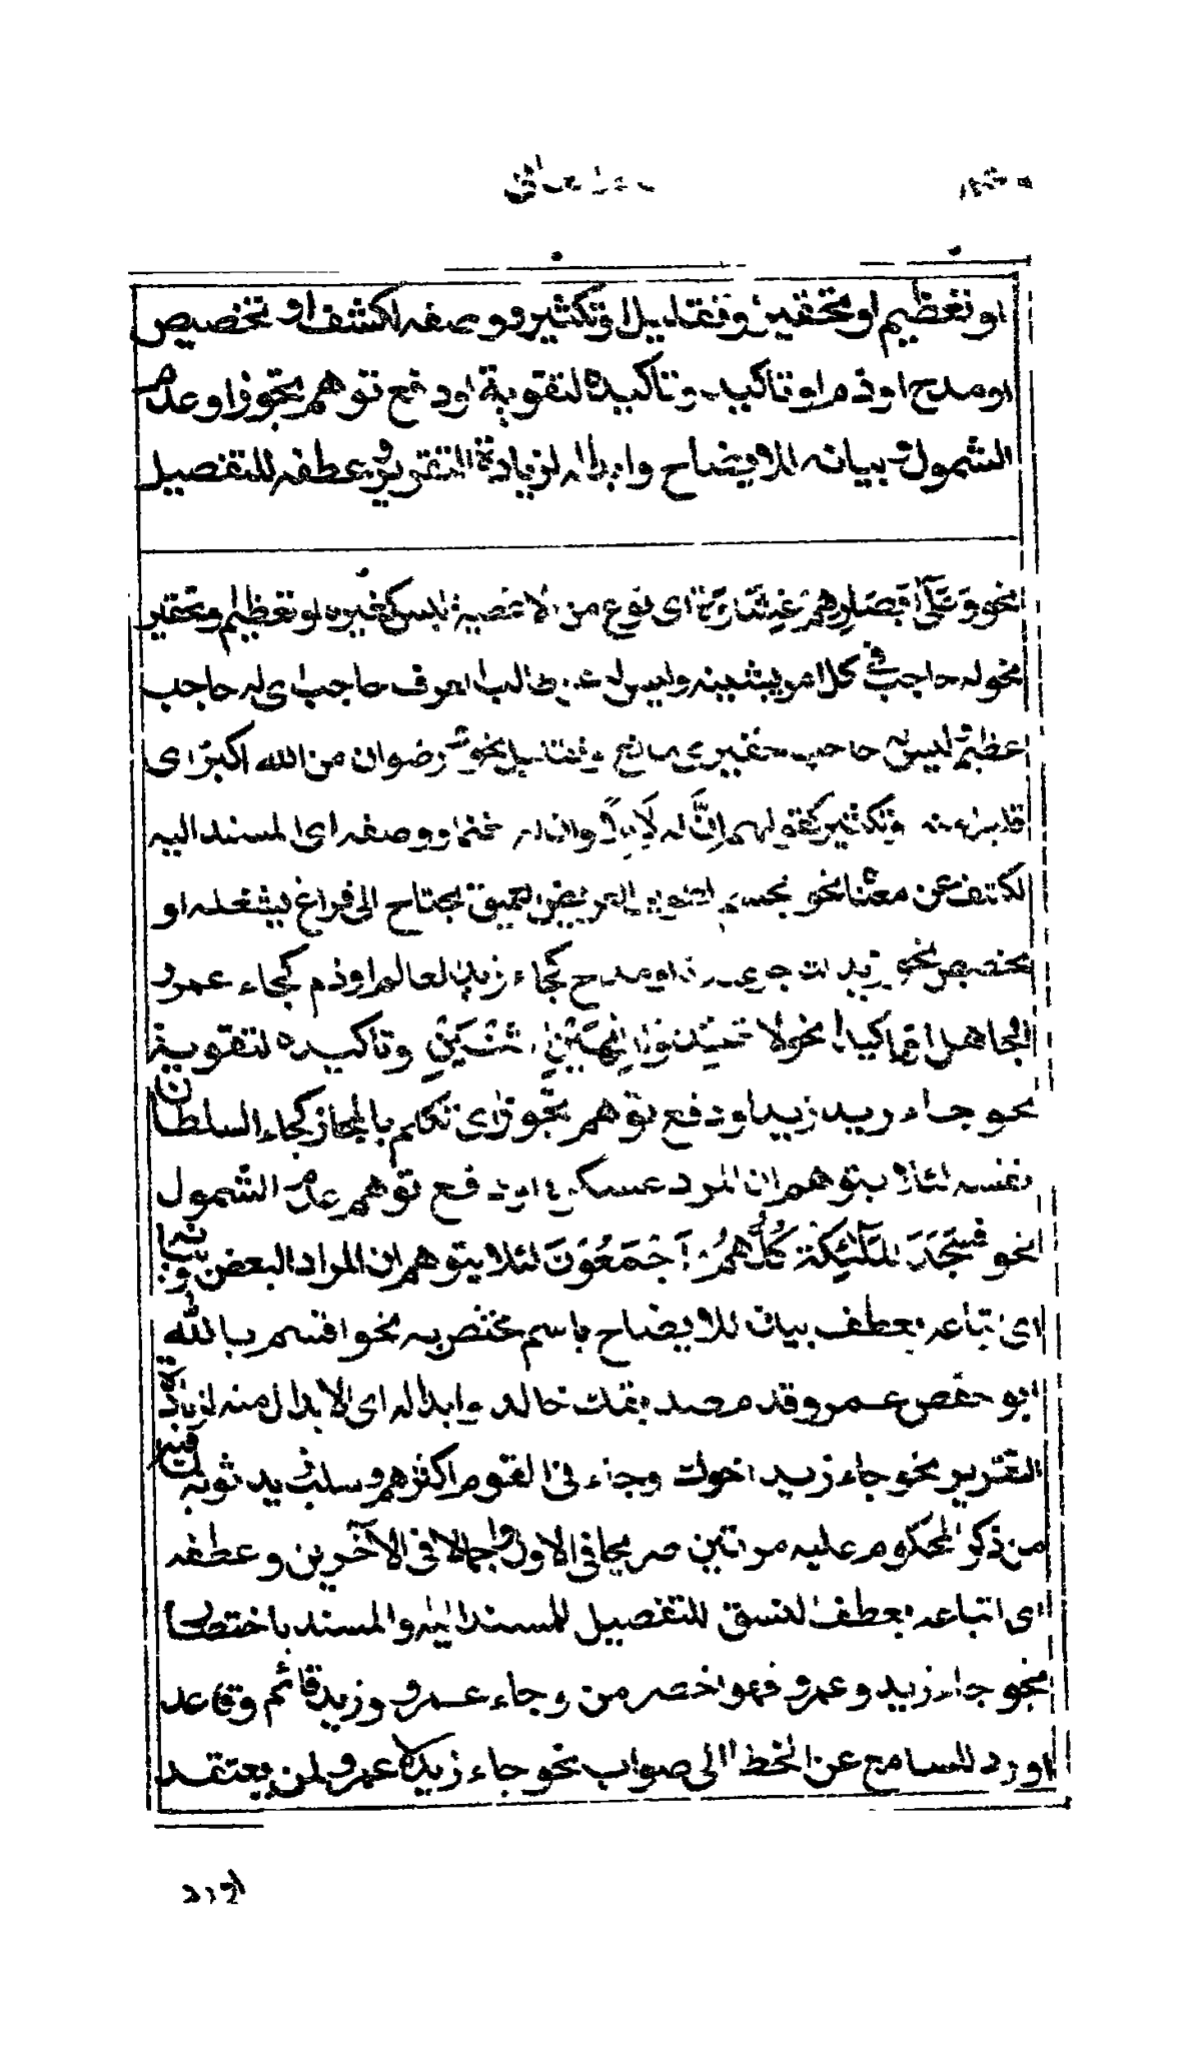 او تعظيم او تحقير وتقليل او تكثير ووصفه لكشف او تخصيص
او مدح او ذم او تاكيد وتاكيده لتقوية او دفع توهم تجوز او عدم
الشمول وبيانه للايضاح وابداله لزيادة التقرير وعطفه للتفصيل
نحو وَعَلَىٰ اَبْصَارِهِمْ غِشَاوَةٌ اى نوع من الاغشية ليس كغيره او تعظيم وتحقير
نحو له حاجب فى كل امر يشينه وليس له عن طالب العرف حاجب اى له حاجب
عظيم ليس له حاجب حقير اى مانع وتقليل نحو ورضوان من الله اكبر اى
قليل منه وتكثير كقولهم اِنَّ له لَاِبِلًا وان له غنما ووصفه اى المسند اليه
لكشف عن معناه نحو الجسم الطويل العريض العميق يحتاج الى فراغ يشغله او
تخصيص نحو زيد التاجر او مدح كجاء زيد العالم او ذم كجاء عمرو
الجاهل او تاكيد نحو لا تتخذوا اِلٰهَيْنِ اثْنَيْنِ وتاكيده لتقوية
نحو جاء زيد زيد او دفع توهم تجوز اى تكلم بالمجاز كجاء السلطان
نفسه لئلا يتوهم ان المراد عسكره او دفع توهم عدم الشمول
نحو فَسَجَدَ الْمَلٰٓئِكَةُ كُلُّهُمْ اَجْمَعُوْنَ لئلا يتوهم ان المراد البعض وبيانه
اى اتباعه بعطف بيان للايضاح باسم مختص به نحو اقسم بالله
ابو حفص عمر وقدم صديقك خالد وابداله اى الابدال منه لزيادة
التقرير نحو جاء زيد اخوك وجاءنى القوم اكثرهم وسلب زيد ثوبه لما فيه
من ذكر المحكوم عليه مرتين صريحا فى الاول واجمالا فى الآخرين وعطفه
اى اتباعه بعطف النسق للتفصيل للمسند اليه والمسند باختصار
نحو جاء زيد وعمرو فهو اخصر من وجاء عمرو وزيد قائم وقاعد
او رد للسامع عن الخطا الى صواب نحو جاء زيد لا عمرو لمن يعتقد